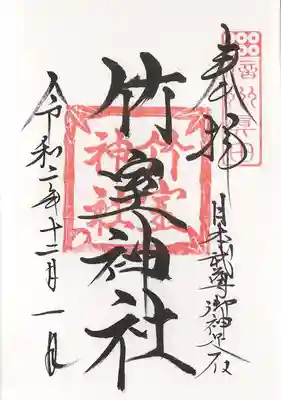 奉拝
日本武尊御神足石
竹室神社
竹室神社
令和二年十二月一日